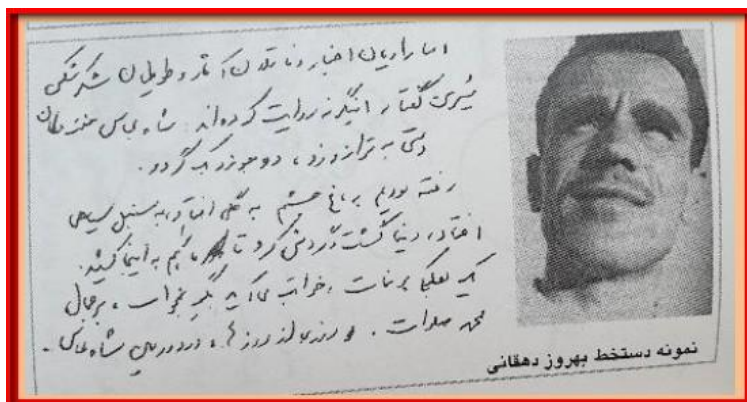 اما راویان اخبار و ناقلان آثار و طوطیان شکرشکن
شیرین گفتار اینگونه روایت کرده‌اند شاه عباس جنت مکان
دستی به ترازو زد، دو مویزد کب گردو.
رفته بودیم به باغ چشم به گلی افتاد، به سنبل سیاهی
افتاد، دنیا گشت گردش کرد تا کار ما هم به اینجا کشید.
یک نعلبکی بر نبات، خوابت می‌آید بگیر بخواب، بر جمال
محمد صلوات. روزی از روزها، در دوره‌ی شاه عباس.
نمونه دستخط بهروز دهقانی